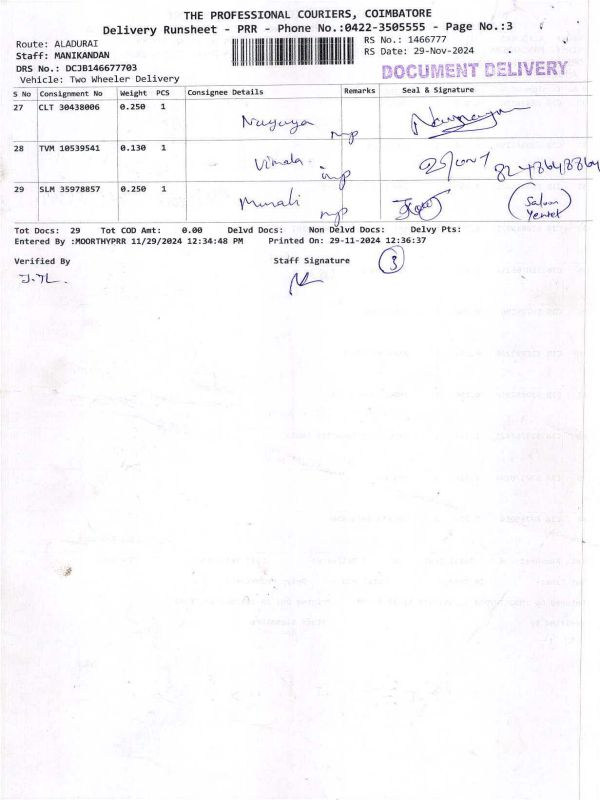 THE PROFESSIONAL COURIERS, COIMBATORE
Delivery Runsheet - PRR - Phone No.:0422-3505555 - Page No.:3
Route: ALADURAI
RS No.: 1466777
Staff: MANIKANDAN
RS Date: 29-Nov-2024
DRS No.: DCJB146677703
DOCUMENT DELIVERY
Vehicle: Two Wheeler Delivery
S No Consignment No Weight PCS Consignee Details Remarks Seal & Signature
27 CLT 30438006 0.250 1
28 TVM 10539541 0.130 1 Vimala
29 SLM 35978857 0.250 1 Murali
Tot Docs: 29 Tot COD Amt: 0.00 Delvd Docs: Non Delvd Docs: Delvy Pts:
Entered By :MOORTHYPRR 11/29/2024 12:34:48 PM Printed On: 29-11-2024 12:36:37
Verified By Staff Signature 3